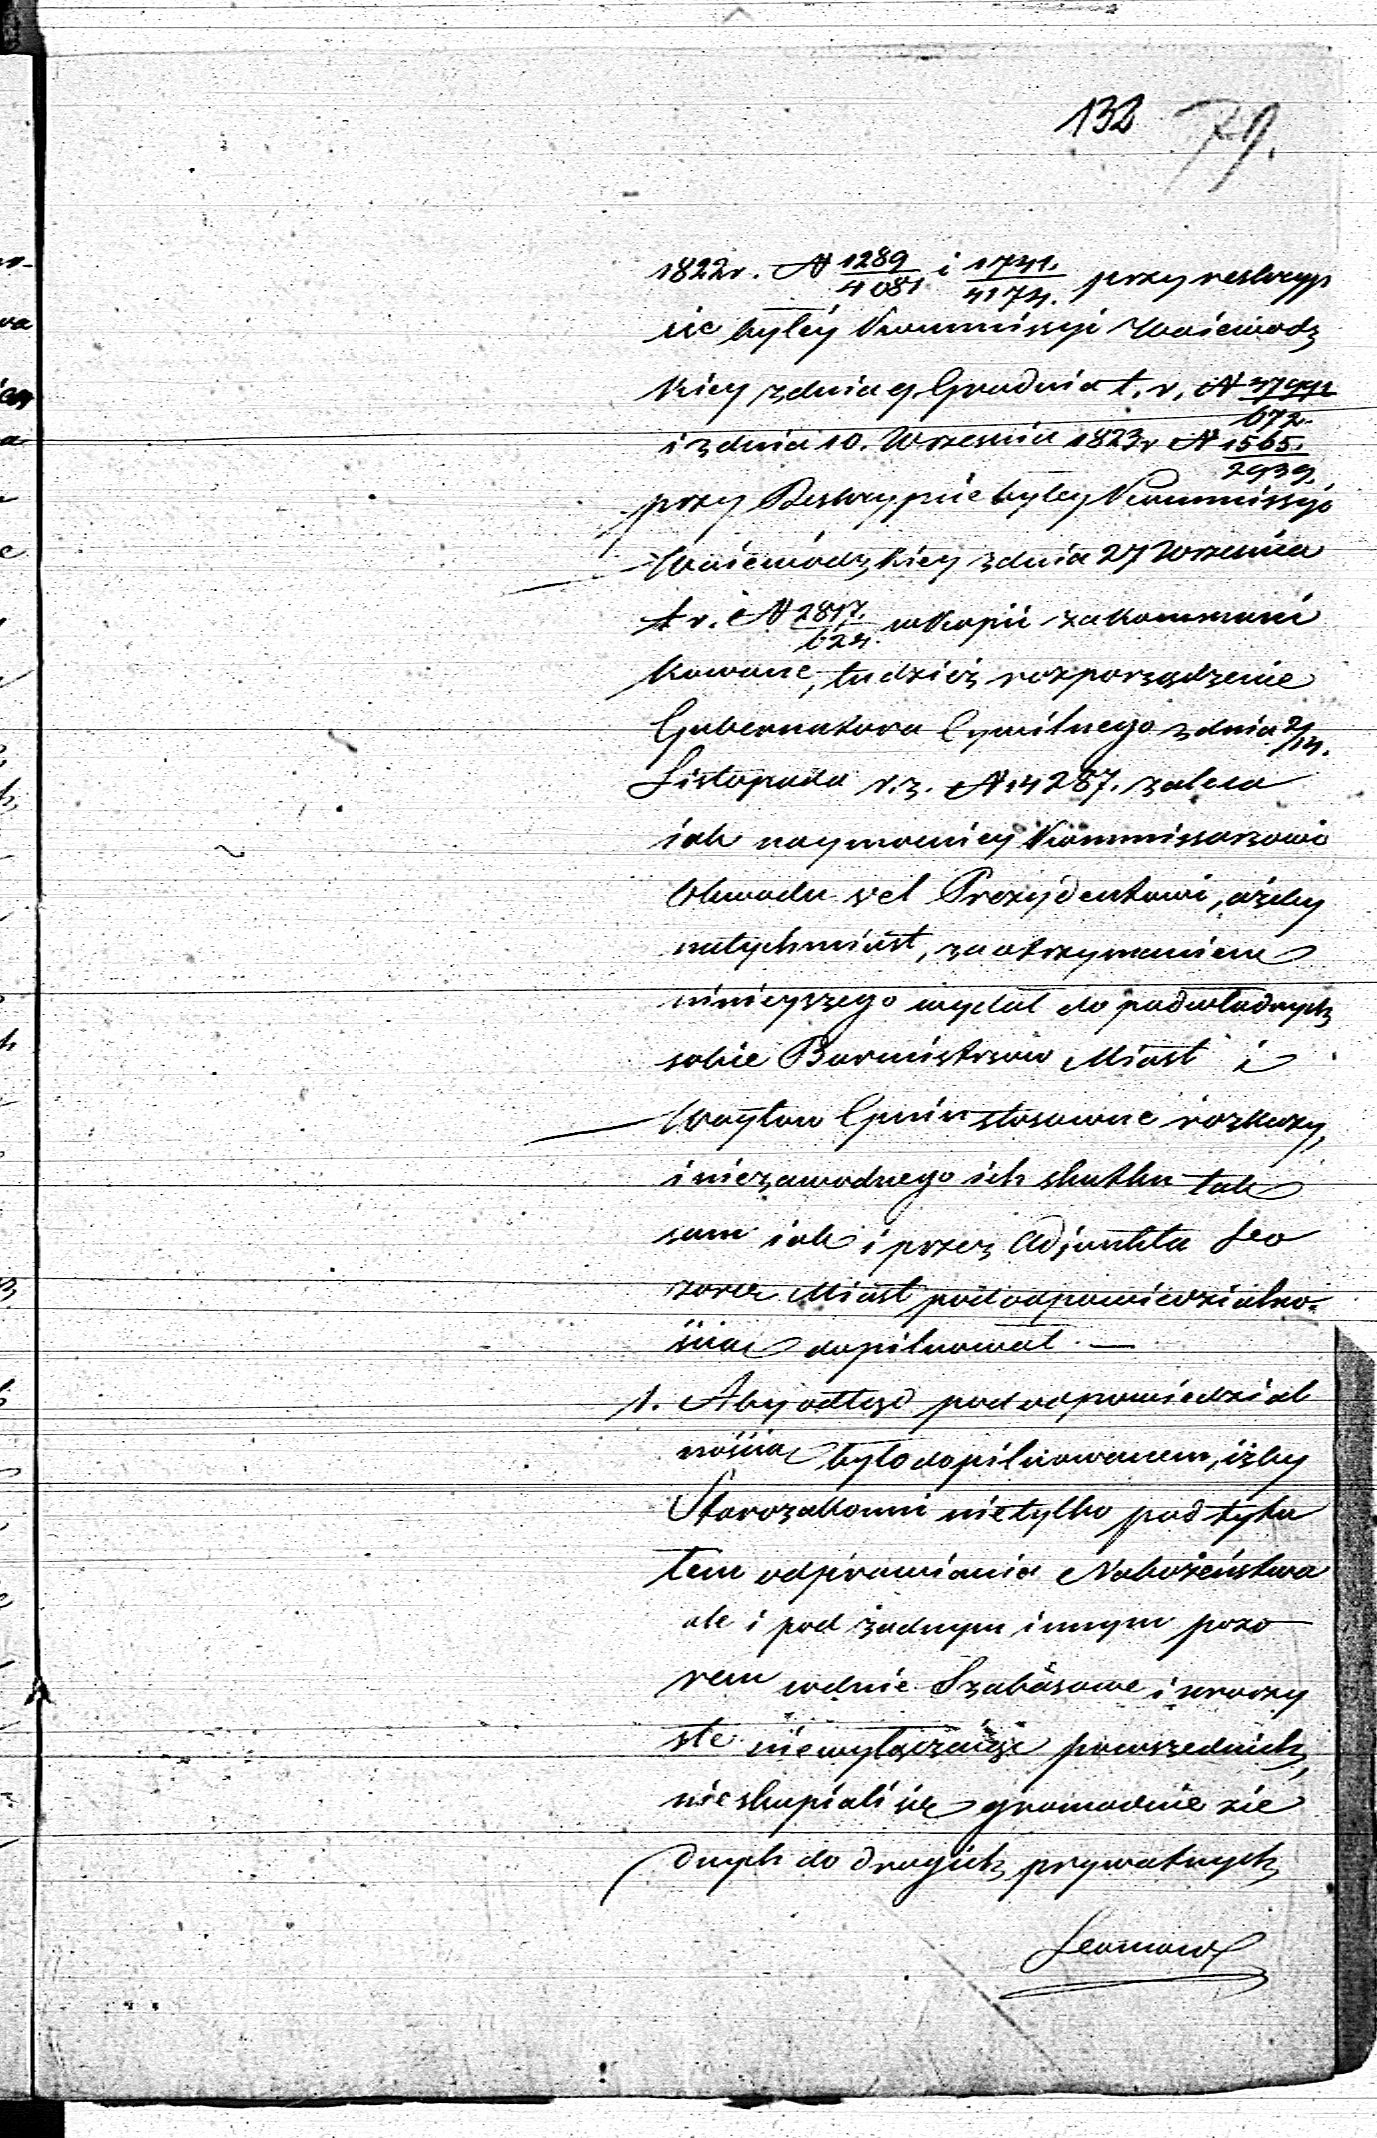 132 79.
1822 r. N 1289/4081 i 1741./4174. przy reskryp
cie byłey Kommissyi Woiewodz
kiey z dnia 9 Grudnia t. r. N 37992/672.
i z dnia 10. Wrzesnia 1823 r N 1565./2939.
przy Reskrypcie byłey Kommissyi
Woiewódzkiey z dnia 27 Wrzesnia
t r. N 2817./624. w kopii zakommuni
kowane, tudzież rozporządzenie
Gubernatora Cywilnego z dnia 2/14.
Listopada r. z. N 14287. zaleca
iak naymocniey Kommissarzowi
Obwodu vel Prezydentowi, ażeby
natychmiast, za otrzymaniem
ninieyszego wydał do podwładnych
sobie Burmistrzów Miast i
Woytow Gmin stosowne rozkazy,
i niezawodnego ich skutku tak
sam iak i przez Adjunkta Do
zorcę Miast pod odpowiedzialno-
ścią dopilnował. —
1. Aby odtąd pod odpowiedzial
nością było dopilnowanem, iżby
Starozakonni nie tylko pod tytu
łem odprawiania Nabożeństwa
ale i pod żadnym innym pozo
rem w dnie Szabasowe i uroczy
ste niewyłączaiąc powszednich,
nie skupiali się gromadnie z ie
dnych do drugich prywatnych